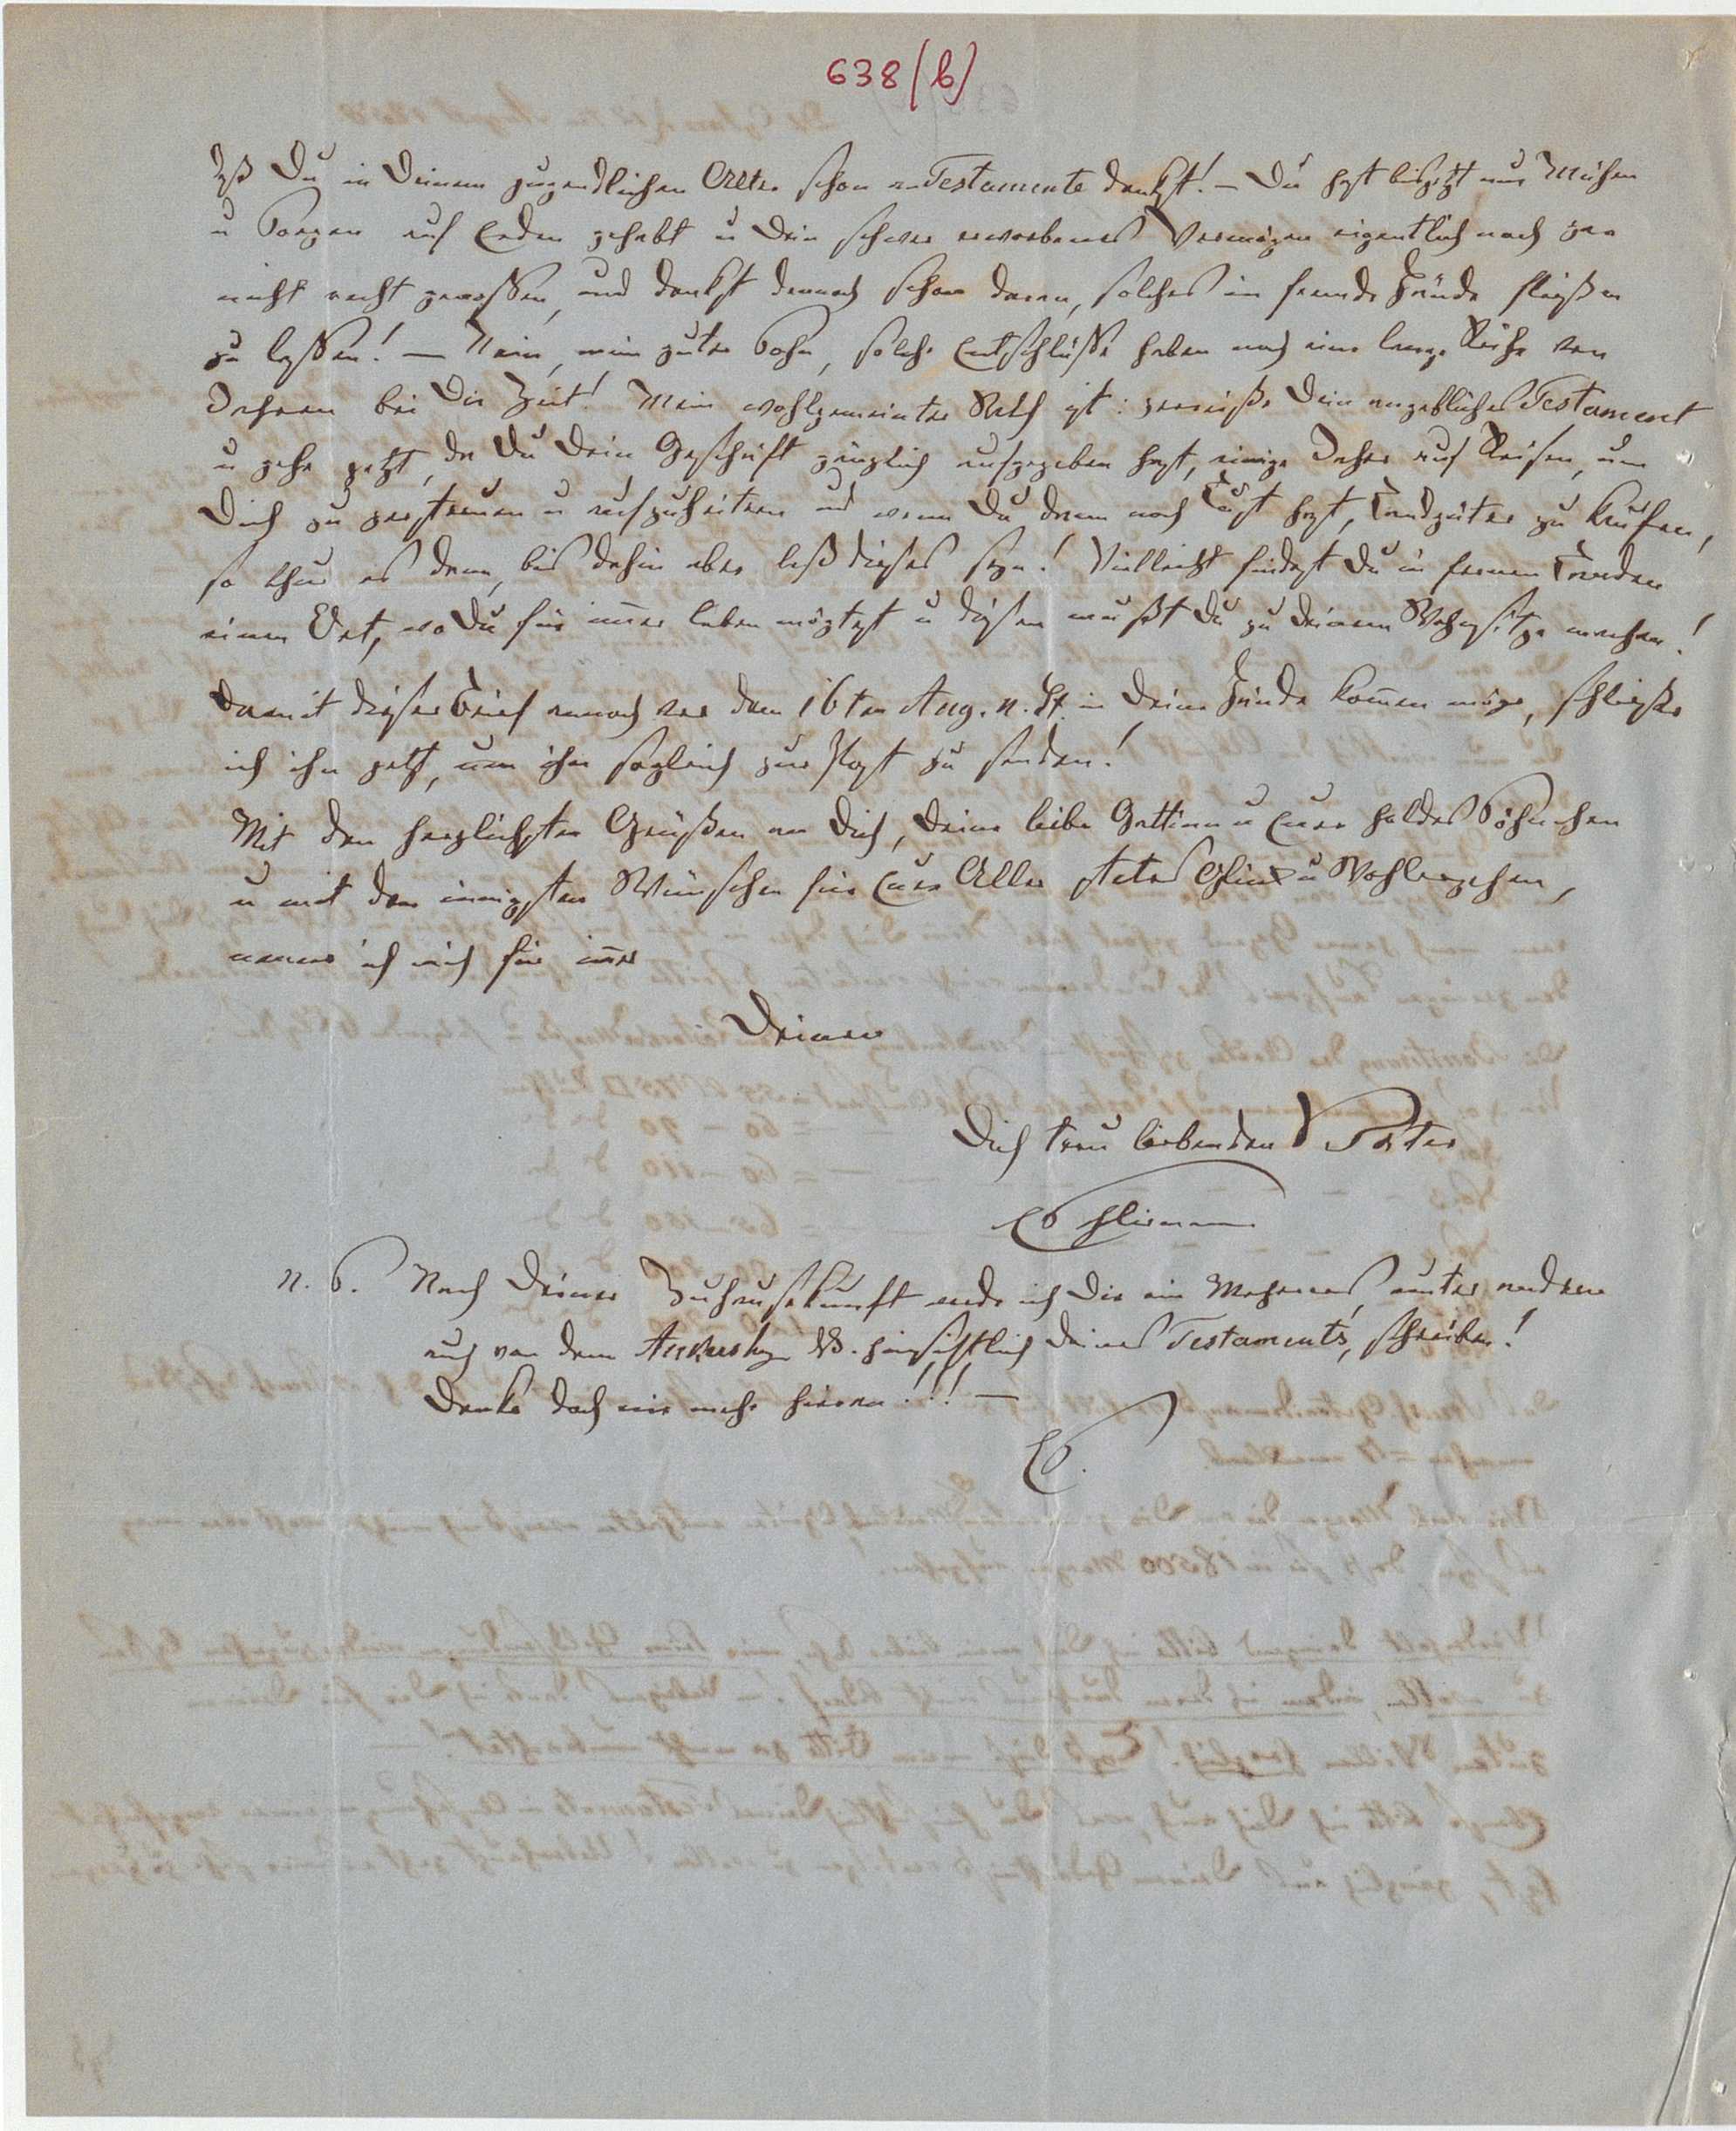 638/b)
daß Du in Deinem jugendlichen Alter schon an Testamente denkst! – Du hast bis jetzt nur Mühen
u Sorgen auf Erden gehabt u Dein schwer erworbenes Vermögen eigentlich noch gar
nicht recht genossen, und denkst dennoch schon daran, solches in fremde Hände fließen
zu lassen! – Nein, mein guter Sohn, solche Entschlüsse haben noch eine lange Reihe von
Jahren bei Dir Zeit! Mein wohlgemeinter Rath ist: zerreiße Dein angebliches Testament
u gehe jetzt, da Du Dein Geschäft gänzlich aufgegeben hast, einige Jahre auf Reisen, um
Dich zu zerstreuen u aufzuheitern und wenn Du dann noch Lust hast, Landgüter zu kaufen,
so thue es dann, bis dahin aber laß dieses seyn! Vielleicht findest Du in fernen Landen
einen Ort, wo Du für imer leben mögtest u diesen mußt Du zu Deinem Wohnsitze machen!
Damit dieser Brief annoch vor dem 16ten Aug. n. St. in Deine Hände komen möge, schließe
ich ihn jetzt, um ihn sogleich zur Post zu senden!
Mit den herzlichsten Grüßen an Dich, Deine liebe Gattinn u Euer holdes Söhnchen
u mit den innigsten Wünschen für Euer Aller stetes Glück u Wohlergehen,
nenne ich mich für imer
Deinen
Dich treu liebenden Vater
ESchliemann
N. S. Nach Deiner Zuhausekunft werde ich Dir ein Mehreres, unter andern
auch von dem hinsichtlich Deines Testaments, schreiben!
Denke doch nie mehr hieran!!! –
ES.